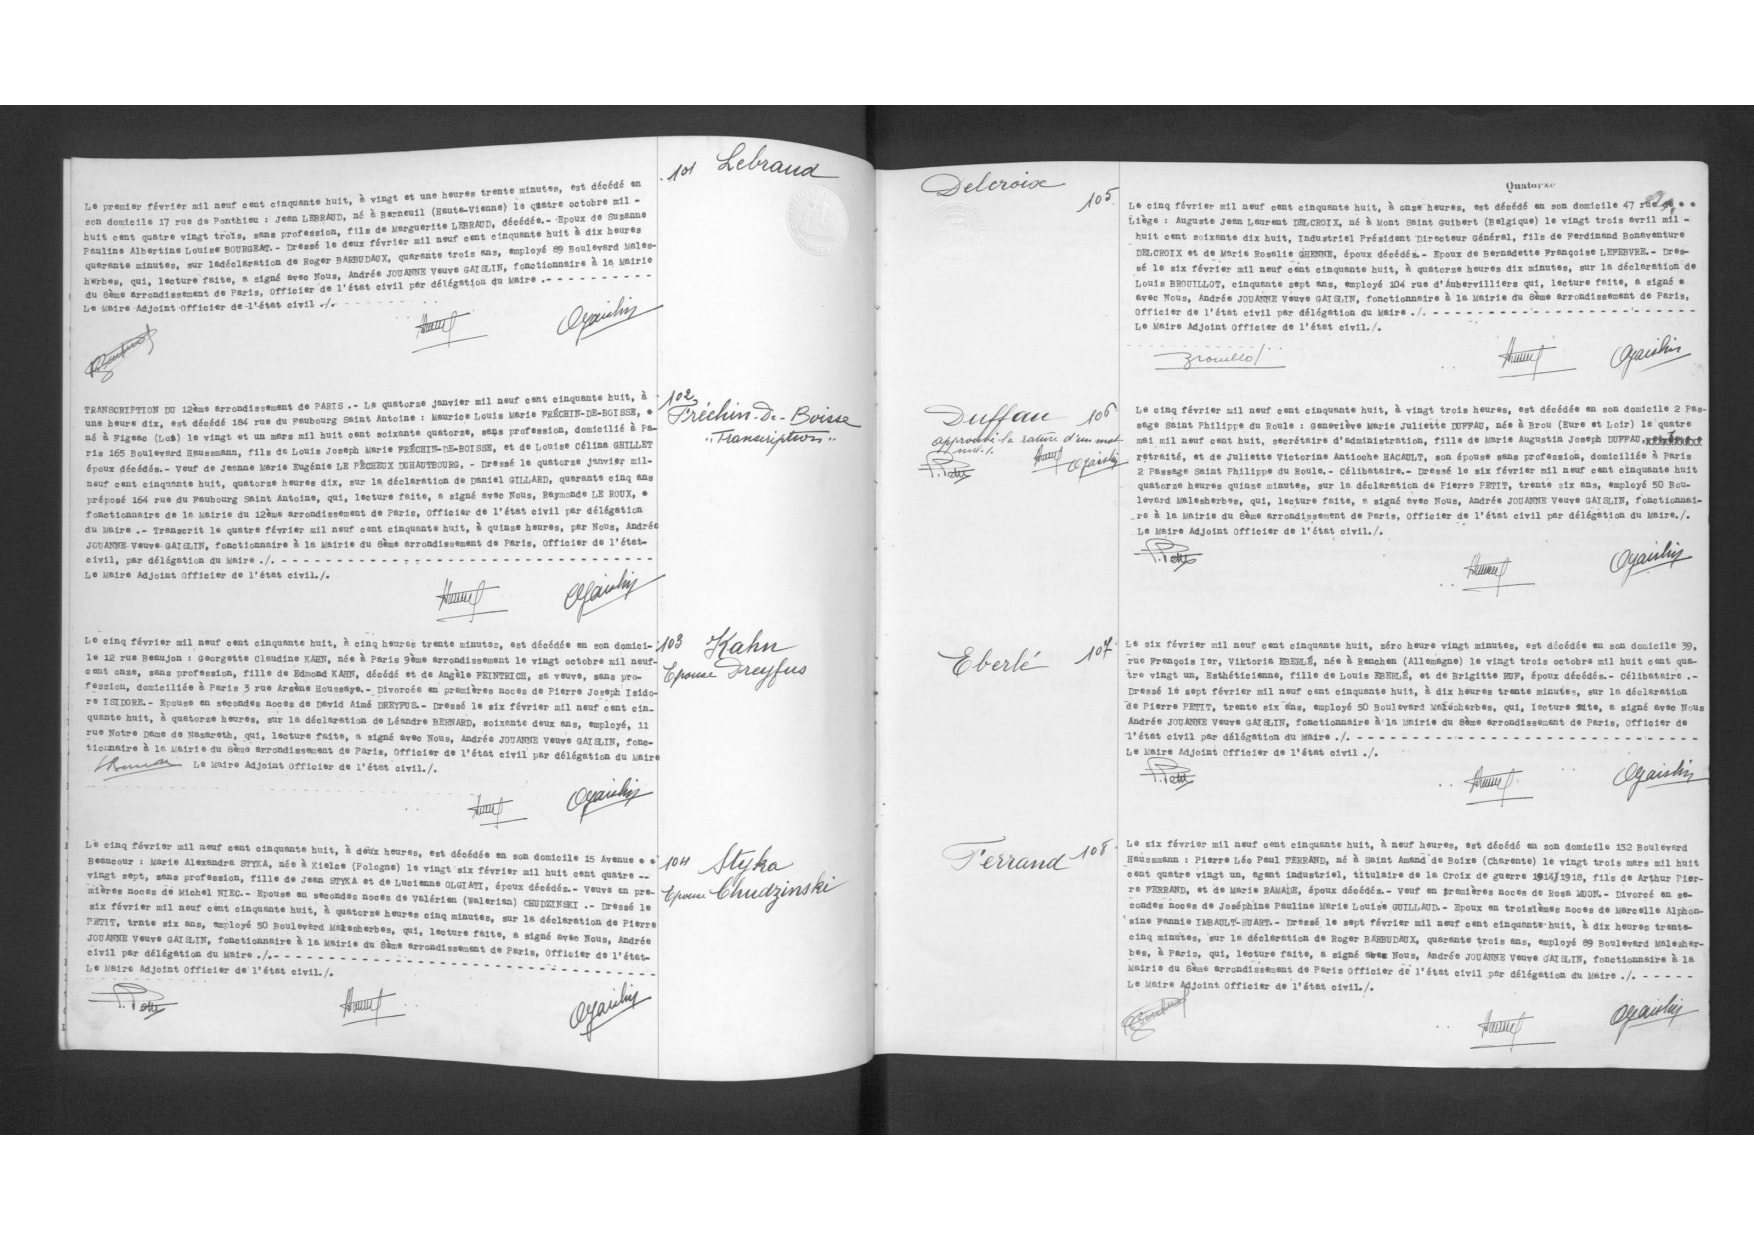 101 Lebraud
Le premier février mil neuf cent cinquante huit, à vingt et une heures trente minutes, est décédé en
son domicile 17 rue de Ponthieu : Jean LEBRAUD, né à Berneuil (Haute-Vienne) le quatre octobre mil -
huit cent quatre vingt trois, sans profession, fils de Marguerite LEBRAUD, décédée.- Epoux de Suzanne
Pauline Albertine Louise BOURGEAT.- Dressé le deux février mil neuf cent cinquante huit à dix heures
quarante minutes, sur ladéclaration de Roger BARBUDAUX, quarante trois ans, employé 89 Boulevard Males-
herbes, qui, lecture faite, a signé avec Nous, Andrée JOUANNE Veuve GAISLIN, fonctionnaire à la Mairie
du 8ème arrondissement de Paris, Officier de l'état civil par délégation du Maire .- - - - - - - - - -
Le Maire Adjoint Officier de l'état civil ./.
102
Fréchin-De-Boisse
"Transcription"
TRANSCRIPTION DU 12ème arrondissement de PARIS .- Le quatorze janvier mil neuf cent cinquante huit, à
une heure dix, est décédé 184 rue du Faubourg Saint Antoine : Maurice Louis Marie FRÉCHIN-DE-BOISSE, *
né à Figeac (Lot) le vingt et un mars mil huit cent soixante quatorze, sans profession, domicilié à Pa-
ris 165 Boulevard Haussmann, fils de Louis Joseph Marie FRÉCHIN-DE-BOISSE, et de Louise Célina GHILLET
époux décédés.- Veuf de Jeanne Marie Eugénie LE PÈCHEUX DUHAUTBOURG, - Dressé le quatorze janvier mil-
neuf cent cinquante huit, quatorze heures dix, sur la déclaration de Daniel GILLARD, quarante cinq ans
préposé 164 rue du Faubourg Saint Antoine, qui, lecture faite, a signé avec Nous, Raymonde LE ROUX, *
fonctionnaire de la Mairie du 12ème arrondissement de Paris, Officier de l'état civil par délégation
du Maire .- Transcrit le quatre février mil neuf cent cinquante huit, à quinze heures, par Nous, Andrée
JOUANNE Veuve GAISLIN, fonctionnaire à la Mairie du 8ème arrondissement de Paris, Officier de l'état-
civil, par délégation du Maire ./. - - - - - - - - - -
Le Maire Adjoint Officier de l'état civil./.
103 Kahn
Epouse Dreyfus
Le cinq février mil neuf cent cinquante huit, à cinq heures trente minutes, est décédée en son domici-
le 12 rue Beaujon : Georgette Claudine KAHN, née à Paris 9ème arrondissement le vingt octobre mil neuf-
cent onze, sans profession, fille de Edmond KAHN, décédé et de Angèle FEINTRICH, sa veuve, sans pro-
fession, domiciliée à Paris 3 rue Arsène Houssaye.- Divorcée en premières noces de Pierre Joseph Isido-
re ISIDORE.- Epouse en secondes noces de David Aimé DREYFUS.- Dressé le six février mil neuf cent cin-
quante huit, à quatorze heures, sur la déclaration de Léandre BERNARD, soixante deux ans, employé, 11
rue Notre Dame de Nazareth, qui, lecture faite, a signé avec Nous, Andrée JOUANNE Veuve GAISLIN, fonc-
tionnaire à la Mairie du 8ème arrondissement de Paris, Officier de l'état civil par délégation du Maire
Le Maire Adjoint Officier de l'état civil./.
104 Styka
Epouse Chudzinski
Le cinq février mil neuf cent cinquante huit, à deux heures, est décédée en son domicile 15 Avenue * *
Beaucour : Marie Alexandra STYKA, née à Kielce (Pologne) le vingt six février mil huit cent quatre --
vingt sept, sans profession, fille de Jean STYKA et de Lucienne OLGIATI, époux décédés.- Veuve en pre-
mières noces de Michel NIEC.- Epouse en secondes noces de Valérien (Walerian) CHUDZINSKI .- Dressé le
six février mil neuf cent cinquante huit, à quatorze heures cinq minutes, sur la déclaration de Pierre
PETIT, trnte six ans, employé 50 Boulevard Malesherbes, qui, lecture faite, a signé avec Nous, Andrée
JOUANNE Veuve GAISLIN, fonctionnaire à la Mairie du 8ème arrondissement de Paris, Officier de l'état-
civil par délégation du Maire ./.- - - - - - - - - -
Le Maire Adjoint Officier de l'état civil./.
Quatorze
Delcroix
105
Le cinq février mil neuf cent cinquante huit, à onze heures, est décédé en son domicile 47 rue de * *
Liège : Auguste Jean Laurent DELCROIX, né à Mont Saint Guibert (Belgique) le vingt trois avril mil -
huit cent soixante dix huit, Industriel Président Directeur Général, fils de Ferdinand Bonaventure
DELCROIX et de Marie Rosalie GHENNE, époux décédés.- Epoux de Bernadette Françoise LEFEBVRE.- Dres-
sé le six février mil neuf cent cinquante huit, à quatorze heures dix minutes, sur la déclaration de
Louis BROUILLOT, cinquante sept ans, employé 104 rue d'Aubervilliers qui, lecture faite, a signé *
avec Nous, Andrée JOUANNE Veuve GAISLIN, fonctionnaire à la Mairie du 8ème arrondissement de Paris,
Officier de l'état civil par délégation du Maire ./. - - - - - - - - - -
Le Maire Adjoint Officier de l'état civil./.
Duffau 106
approuvé la rature d'un mot
nul./.
Le cinq février mil neuf cent cinquante huit, à vingt trois heures, est décédée en son domicile 2 Pas-
sage Saint Philippe du Roule : Geneviève Marie Juliette DUFFAU, née à Brou (Eure et Loir) le quatre
mai mil neuf cent huit, secrétaire d'administration, fille de Marie Augustin Joseph DUFFAU,
retraité, et de Juliette Victorine Antioche HACAULT, son épouse sans profession, domiciliée à Paris
2 Passage Saint Philippe du Roule.- Célibataire.- Dressé le six février mil neuf cent cinquante huit
quatorze heures quinze minutes, sur la déclaration de Pierre PETIT, trente six ans, employé 50 Bou-
levard Malesherbes, qui, lecture faite, a signé avec Nous, Andrée JOUANNE Veuve GAISLIN, fonctionnai-
re à la Mairie du 8ème arrondissement de Paris, Officier de l'état civil par délégation du Maire./.
Le Maire Adjoint Officier de l'état civil./.
Eberlé 107
Le six février mil neuf cent cinquante huit, zéro heure vingt minutes, est décédée en son domicile 39,
rue François Ier, Viktoria EBERLÉ, née à Renchen (Allemagne) le vingt trois octobre mil huit cent qua-
tre vingt un, Esthéticienne, fille de Louis EBERLÉ, et de Brigitte HUF, époux décédés.- Célibataire .-
Dressé le sept février mil neuf cent cinquante huit, à dix heures trente minutes, sur la déclaration
de Pierre PETIT, trente six ans, employé 50 Boulevard Malesherbes, qui, lecture faite, a signé avec Nous
Andrée JOUANNE Veuve GAISLIN, fonctionnaire à la Mairie du 8ème arrondissement de Paris, Officier de
l'état civil par délégation du Maire ./. - - - - - - - - - -
Le Maire Adjoint Officier de l'état civil ./.
Ferrand 108
Le six février mil neuf cent cinquante huit, à neuf heures, est décédé en son domicile 152 Boulevard
Haussmann : Pierre Léo Paul FERRAND, né à Saint Amand de Boixe (Charente) le vingt trois mars mil huit
cent quatre vingt un, agent industriel, titulaire de la Croix de guerre 1914/1918, fils de Arthur Pier-
re FERRAND, et de Marie RAMADE, époux décédés.- Veuf en premières noces de Rosa MOON.- Divorcé en se-
condes noces de Joséphine Pauline Marie Louise GUILLAUD.- Epoux en troisièmes noces de Marcelle Alphon-
sine Fannie IMBAULT-HUART.- Dressé le sept février mil neuf cent cinquante huit, à dix heures trente-
cinq minutes, sur la déclaration de Roger BARBUDAUX, quarante trois ans, employé 89 Boulevard Malesher-
bes, à Paris, qui, lecture faite, a signé avec Nous, Andrée JOUANNE Veuve GAISLIN, fonctionnaire à la
Mairie du 8ème arrondissement de Paris Officier de l'état civil par délégation du Maire ./. - - - - -
Le Maire Adjoint Officier de l'état civil./.